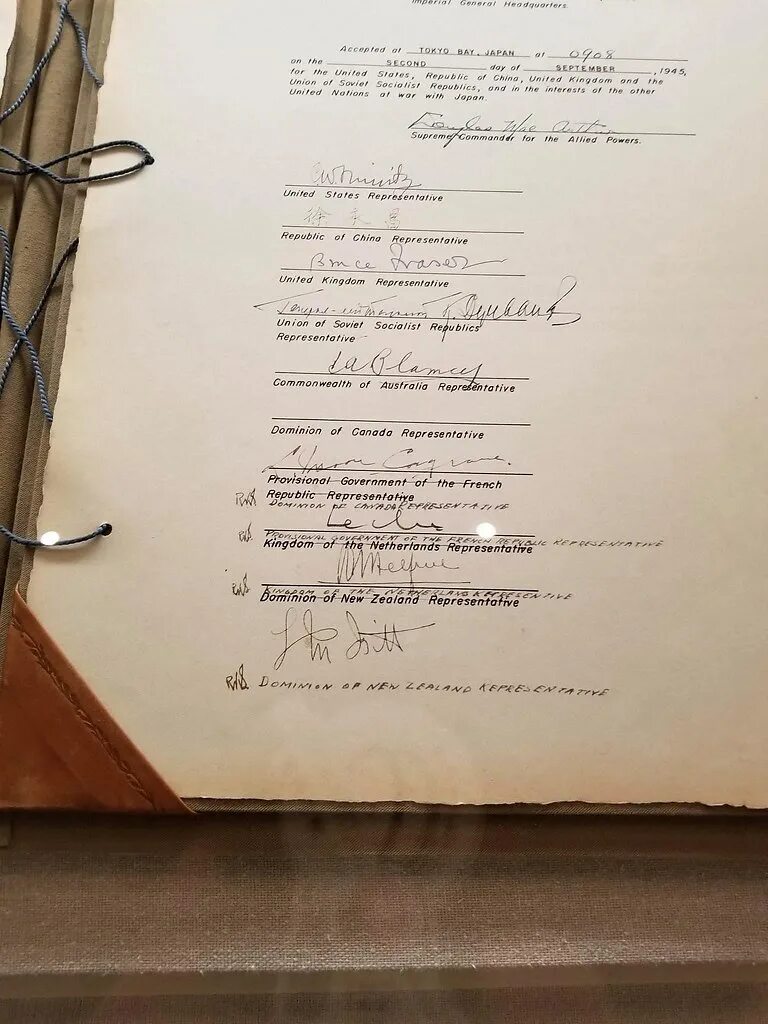 Imperial General Headquarters.
Accepted at TOKYO BAY, JAPAN at 0908
on the SECOND day of SEPTEMBER, 1945,
for the United States, Republic of China, United Kingdom and the
Union of Soviet Socialist Republics, and in the interests of the other
United Nations at war with Japan.
Douglas MacArthur
Supreme Commander for the Allied Powers.
CW Nimitz
United States Representative
徐永昌
Republic of China Representative
Bruce Fraser
United Kingdom Representative
Union of Soviet Socialist Republics
Representative
T A Blamey
Commonwealth of Australia Representative
Dominion of Canada Representative
L. Moore Cosgrave.
Provisional Government of the French
Republic Representative
DOMINION OF CANADA REPRESENTATIVE
Leclerc
PROVISIONAL GOVERNMENT OF THE FRENCH REPUBLIC REPRESENTATIVE
Kingdom of the Netherlands Representative
Helfrich
KINGDOM OF THE NETHERLAND REPRESENTATIVE
Dominion of New Zealand Representative
L M Isitt
DOMINION OF NEW ZEALAND REPRESENTATIVE